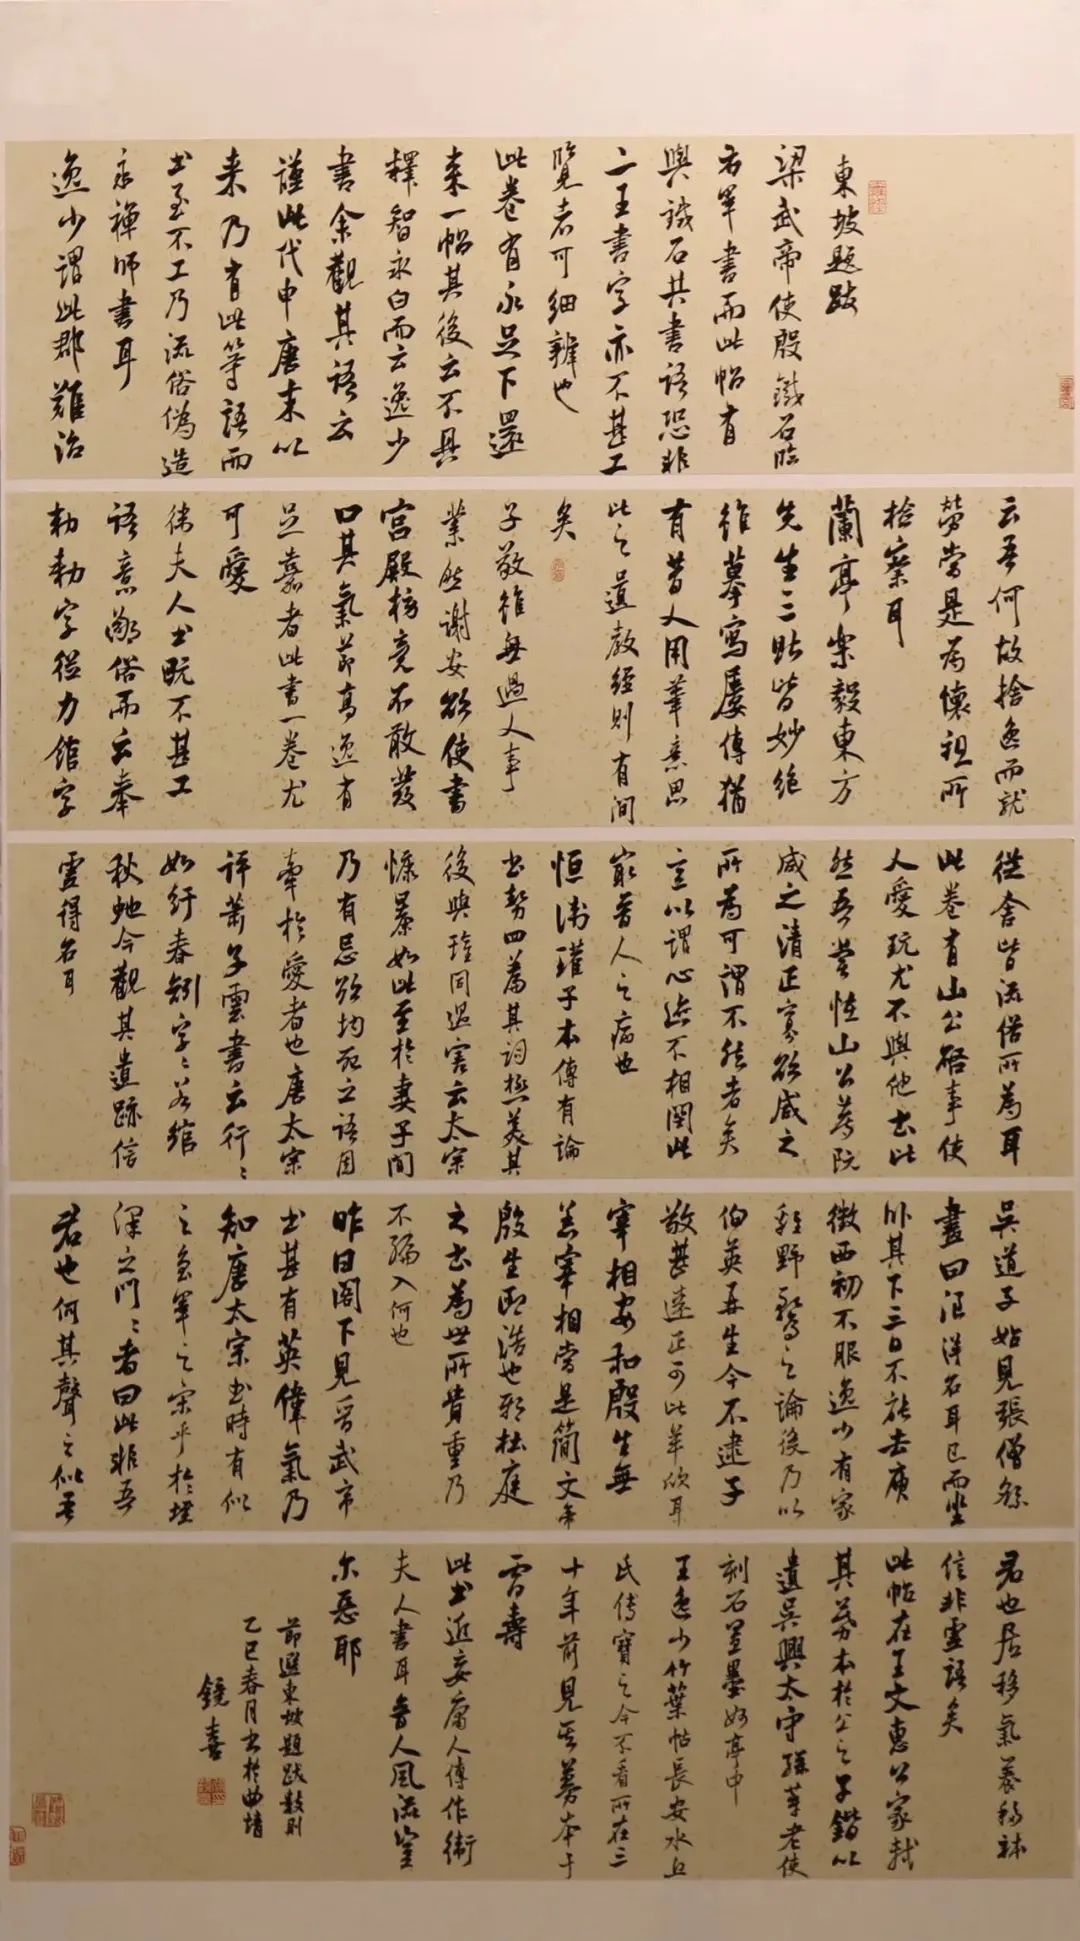 東坡題跋
梁武帝使殷鐵石臨
右軍書而此帖有
與鐵石共書語恐非
二王書字亦不甚工
覽者可細辨也
此卷有永足下還
来一帖其後云不具
釋智永白而云逸少
書余觀其語云
謹此代申唐末以
来乃有此等語而
書至不工乃流俗偽造
永禅師書耳
逸少謂此郡難治
云吾何故捨逸而就
勞當是為懷祖所
檢察耳
蘭亭樂毅東方
先生三帖皆妙絕
雖摹寫屢傳猶
有昔人用筆意思
比之遺教經則有間
矣
子敬雖無過人事
業然謝安欲使書
宮殿榜竟不敢發
口其氣節高逸有
足嘉者此書一卷尤
可愛
衛夫人書既不甚工
語意鄙俗而云奉
勅勅字從力館字
從舍皆流俗所為耳
此卷有山公啓事使
人愛玩尤不與他書比
然吾嘗怪山公薦阮
咸之清正寡欲咸之
所為可謂不然者矣
意以謂心迹不相關此
最晉人之病也
恒衛瓘子本傳有論
書勢四篇其詞極美其
後與瓘同遇害云太宗
慷慨如此至於妻子間
乃有忌欲均死之語固
牽於愛者也唐太宗
評蕭子雲書云行〻
如紆春蚓字〻若綰
秋蛇今觀其遺跡信
虛得名耳
吳道子始見張僧繇
畫曰浪得名耳已而坐
卧其下三日不能去庾
徵西初不服逸少有家
雞野鶩之論後乃以
伯英再生今不逮子
敬甚遠正可比羊欣耳
宰相安和殷生無
恙宰相當是簡文帝
殷生即浩也耶杜庭
之書為世所貴重乃
不編入何也
昨日閣下見晉武帝
書甚有英偉氣乃
知唐太宗書時有似
之魯君之宋乎於垤
澤之門〻者曰此非吾
君也何其聲之似吾
君也居移氣養移體
信非虛語矣
此帖在王文惠公家軾
其摹本於公之子鍇以
遺吳興太守孫莘老使
刻石置墨妙亭中
王逸少竹葉帖長安水丘
氏傳寶之今不看所在三
十年前見其摹本于
雷壽
此書近妄庸人傳作衛
夫人書耳晉人風流豈
尔惡耶
節選東坡題跋數則
乙巳春月書於曲靖
鏡喜